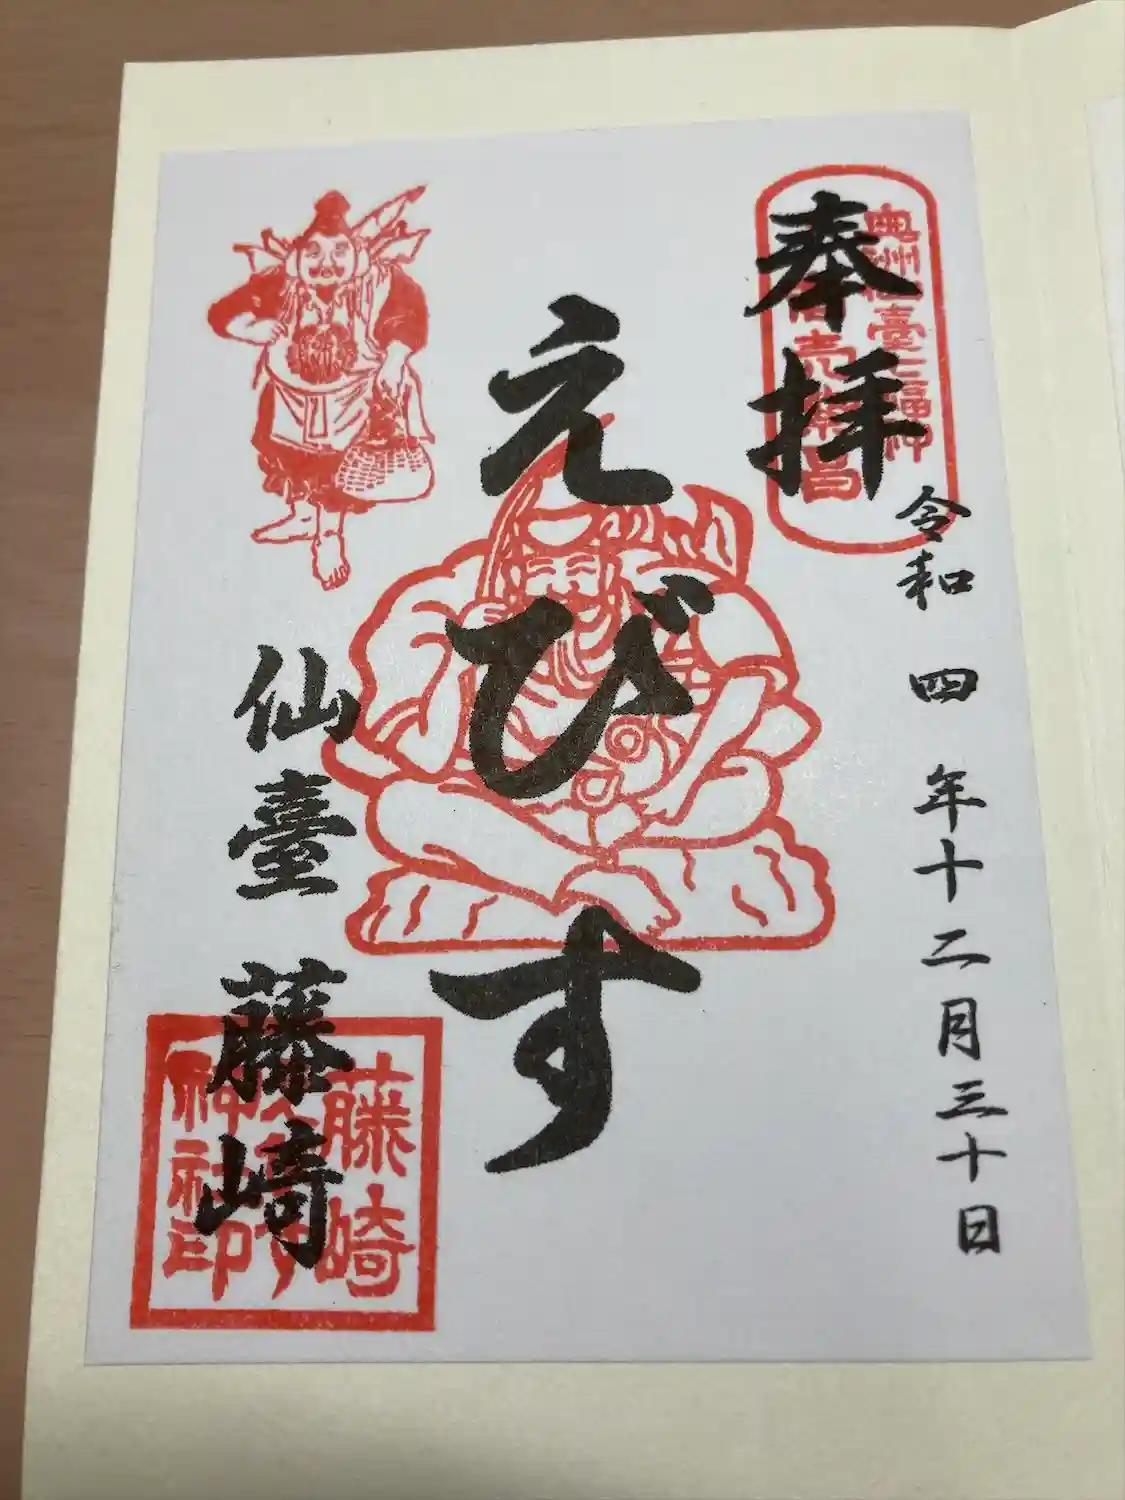 奉拝
奥州仙臺七福神
商売繁昌
令和四年十二月三十日
えびす
仙臺藤崎
藤崎
えびす
神社印